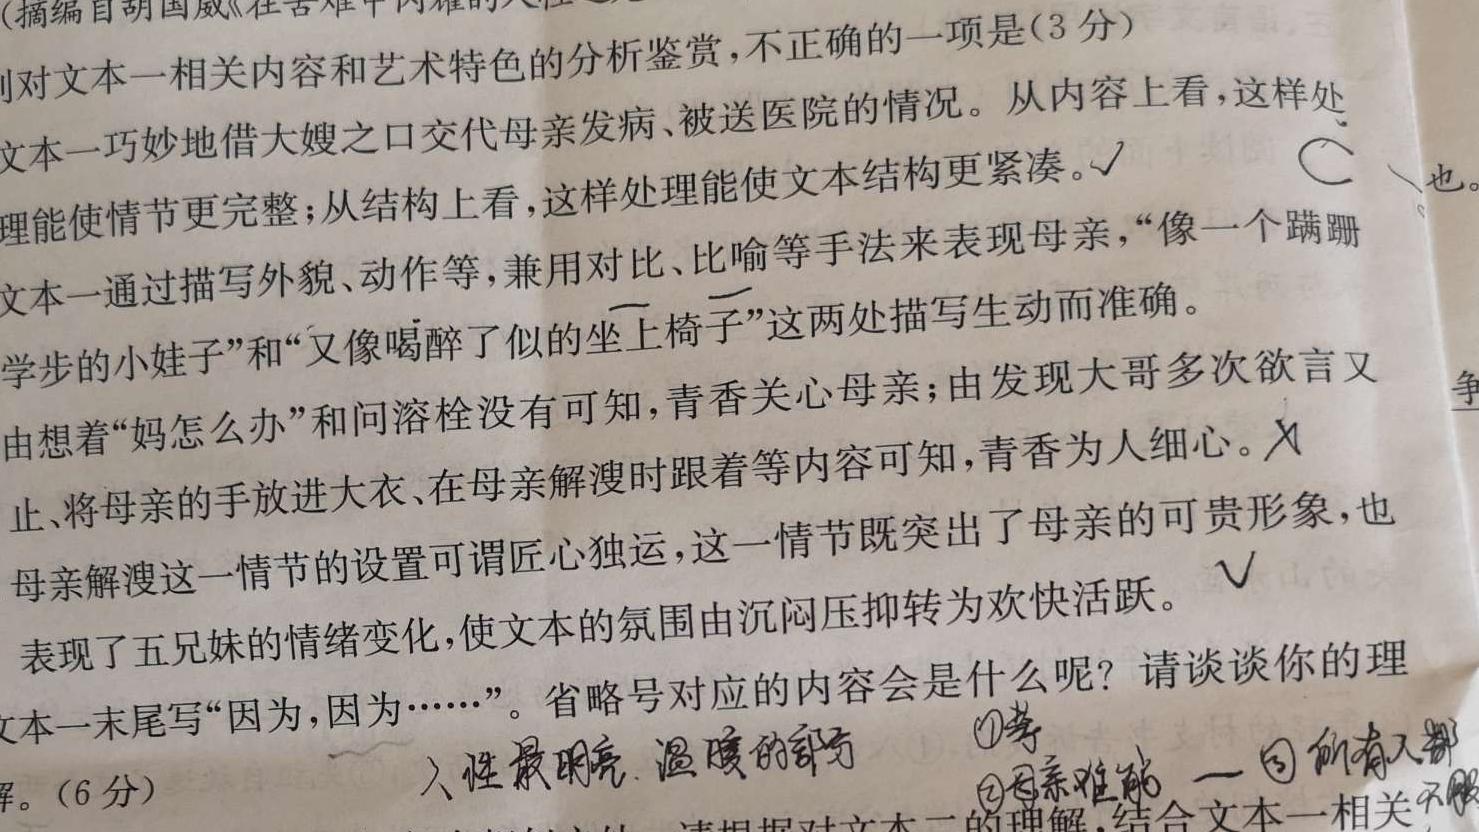 (摘编自胡国威《在苦难中闪耀的人性之光
列对文本一相关内容和艺术特色的分析鉴赏,不正确的一项是(3分)
文本一巧妙地借大嫂之口交代母亲发病、被送医院的情况。从内容上看,这样处
理能使情节更完整;从结构上看,这样处理能使文本结构更紧凑。✓ C 也。
文本一通过描写外貌、动作等,兼用对比、比喻等手法来表现母亲,“像一个蹒跚
学步的小娃子”和“又像喝醉了似的坐上椅子”这两处描写生动而准确。
由想着“妈怎么办”和问溶栓没有可知,青香关心母亲;由发现大哥多次欲言又
止、将母亲的手放进大衣、在母亲解溲时跟着等内容可知,青香为人细心。 X
母亲解溲这一情节的设置可谓匠心独运,这一情节既突出了母亲的可贵形象,也
表现了五兄妹的情绪变化,使文本的氛围由沉闷压抑转为欢快活跃。 ✓
文本一末尾写“因为,因为……”。省略号对应的内容会是什么呢?请谈谈你的理
解。(6分)
人性最明亮.温暖的部分
①孝
②母亲难解 — ③所有人都
请根据对文本二的理解,结合文本一相关